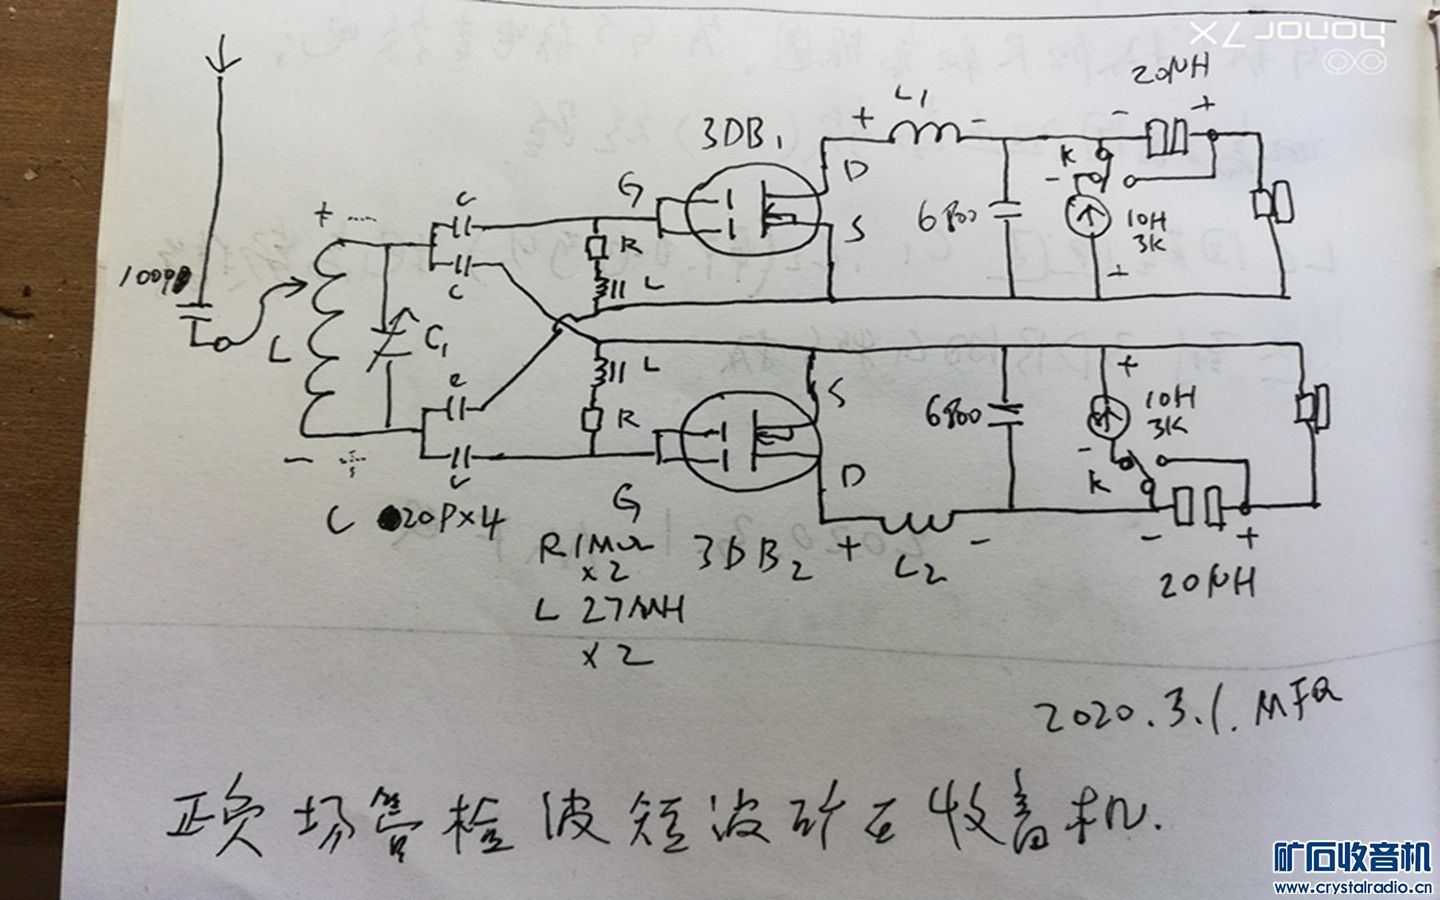 honor 7X
20μH
3DB1
+ L1 -
- +
D
K
G
S
6800
-
10H
3K
+
+
R
L
C
C
100P
L
C1
L
R
C
C
S
6800
+
10H
3K
-
K
D
- +
G
-
C 20P×4
R 1MΩ
×2
3DB2
+ L2 -
20μH
L 27MH
×2
2020.3.1. MFQ
正负场管检波短波矿石收音机.
矿石收音机
www.crystalradio.cn